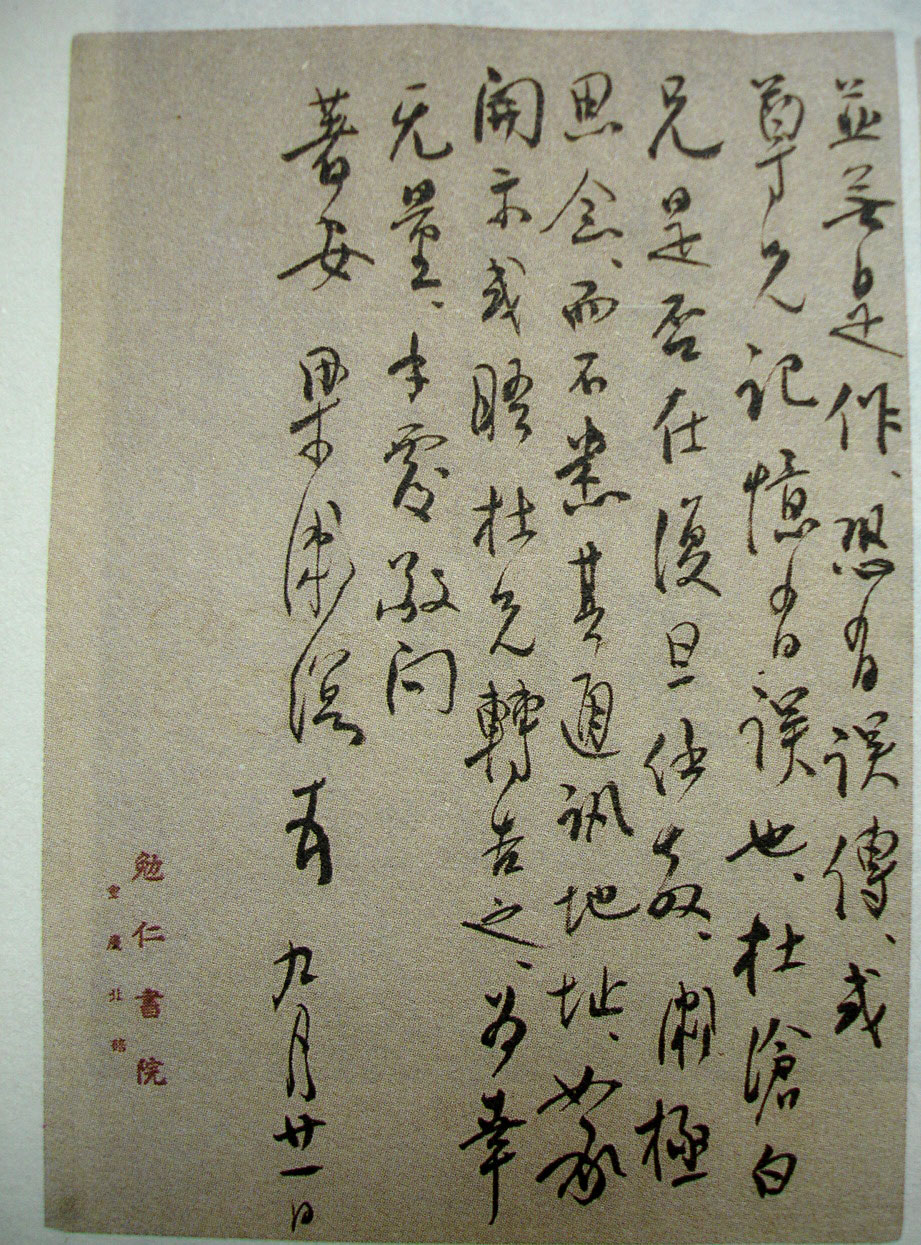 並無是作、恐有誤傳、或
尊兄記憶有誤也、杜滄白
兄是否在復旦任教、潄極
思念、而不悉其通訊地址、如承
開示或晤杜兄轉告之、為幸
无量、專覆敬問
著安 梁漱溟
九月廿一日
勉仁書院
重慶北碚